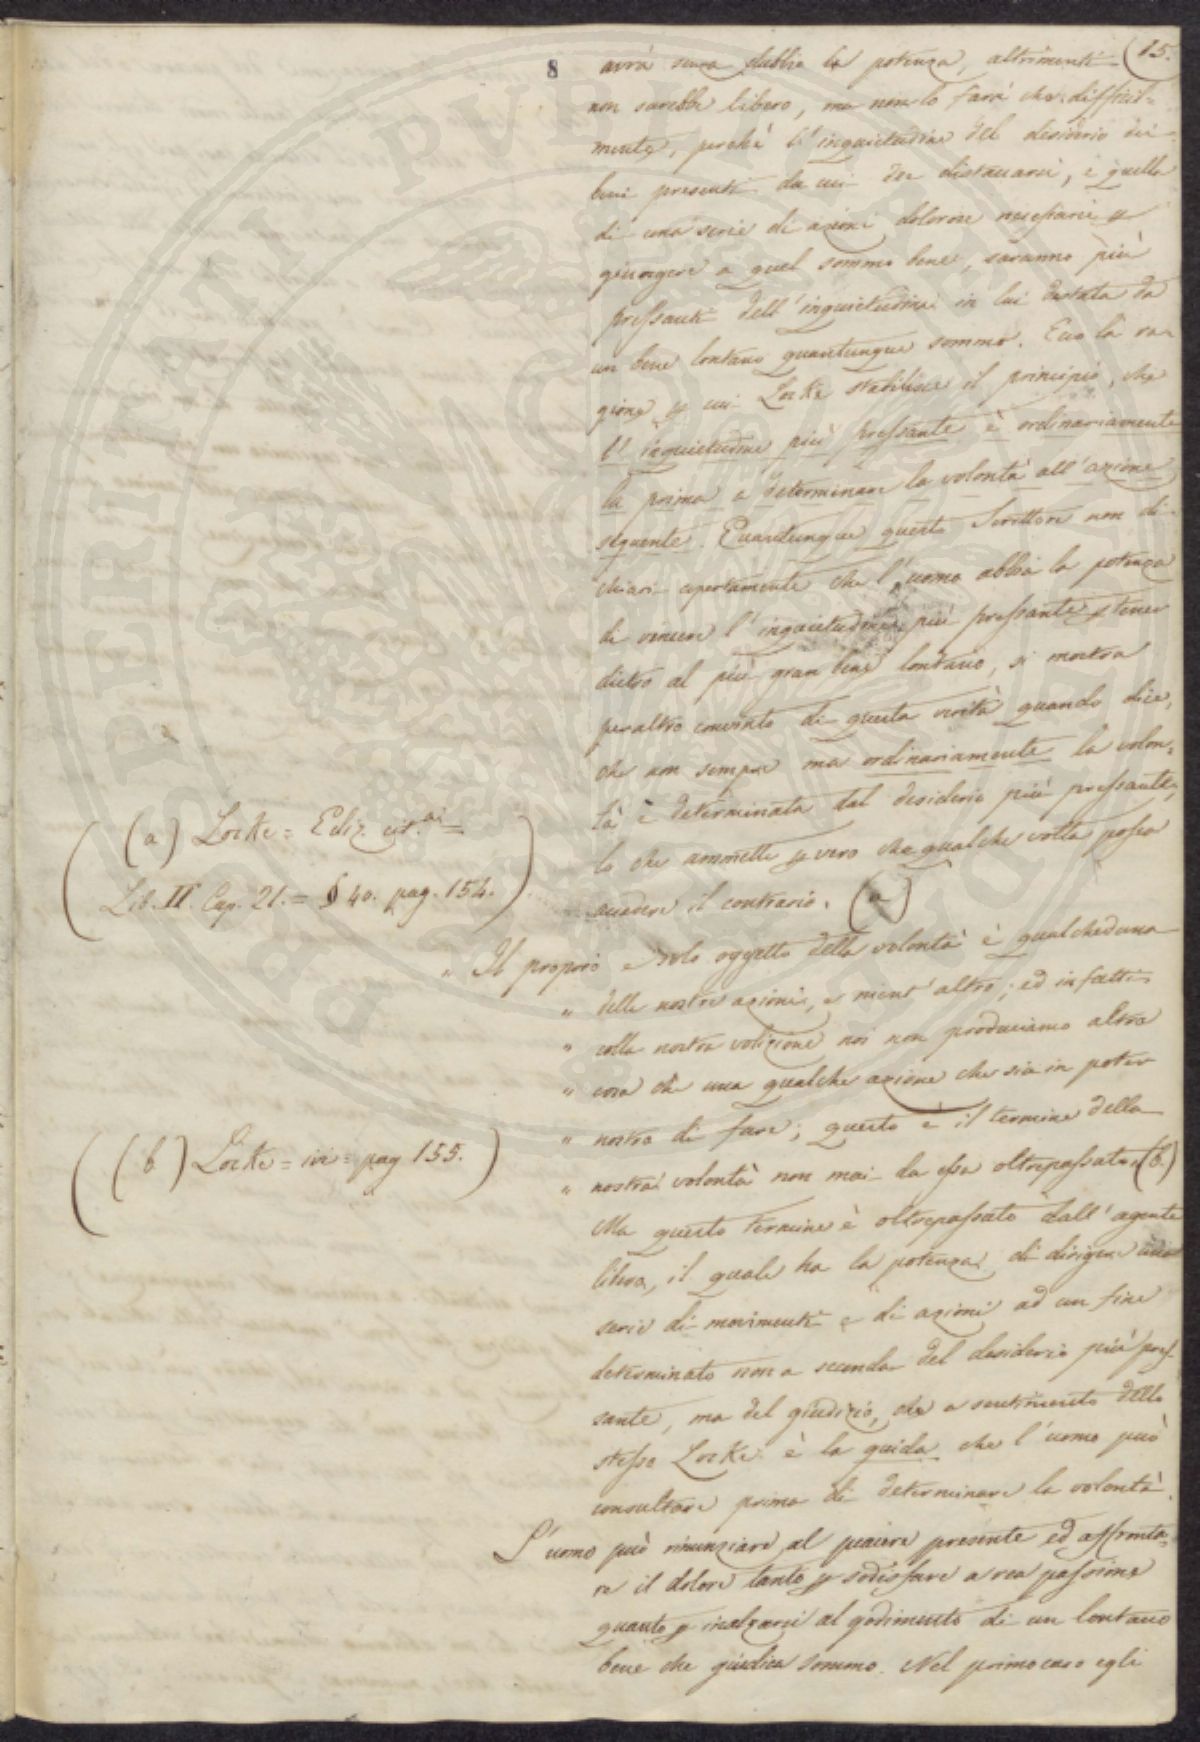 8
(15.
avrà senza dubbio la potenza, altrimenti
non sarebbe libero, ma non lo farà che difficil=
mente, perchè l'inquietudine del desiderio dei
beni presenti da cui dee distaccarsi, e quella
di una serie di azioni dolorose necessarie p
giungere a quel sommo bene, saranno più
pressanti dell'inquietudine in lui destata da
un bene lontano quantunque sommo. Ecco la ra=
gione p cui Locke stabilisce il principio, che
l'inquietudine più pressante è ordinariamente
la prima a determinare la volontà all'azione
seguente. Quantunque questo Scrittore non di=
chiari apertamente che l'uomo abbia la potenza
di vincere l'inquietudine più pressante p tener
dietro al più gran bene lontano, si mostra
peraltro convinto di questa verità quando dice,
che non sempre ma ordinariamente la volon=
tà è determinata dal desiderio più pressante,
lo che ammette p vero che qualche volta possa
accadere il contrario. (a)
(a) Locke = Ediz. cit.
Lib. II. Cap. 21. = § 40. pag. 154.
" Il proprio e solo oggetto della volontà è qualcheduna
" delle nostre azioni, e nient'altro; ed infatti
" colla nostra volizione noi non produciamo altra
" cosa che una qualche azione che sia in poter
" nostro di fare; questo è il termine della
" nostra volontà non mai da essa oltrepassato. (b.)
(b) Locke = ivi = pag 155.
Ma questo termine è oltrepassato dall'agente
libero, il quale ha la potenza di dirigere una
serie di movimenti e di azioni ad un fine
determinato non a seconda del desiderio più pres=
sante, ma del giudizio, che a sentimento dello
stesso Locke è la guida che l'uomo può
consultare prima di determinare la volontà.
L'uomo può rinunziare al piacere presente ed affronta=
re il dolore tanto p sodisfare a rea passione
quanto p inalzarsi al godimento di un lontano
bene che giudica sommo. Nel primo caso egli